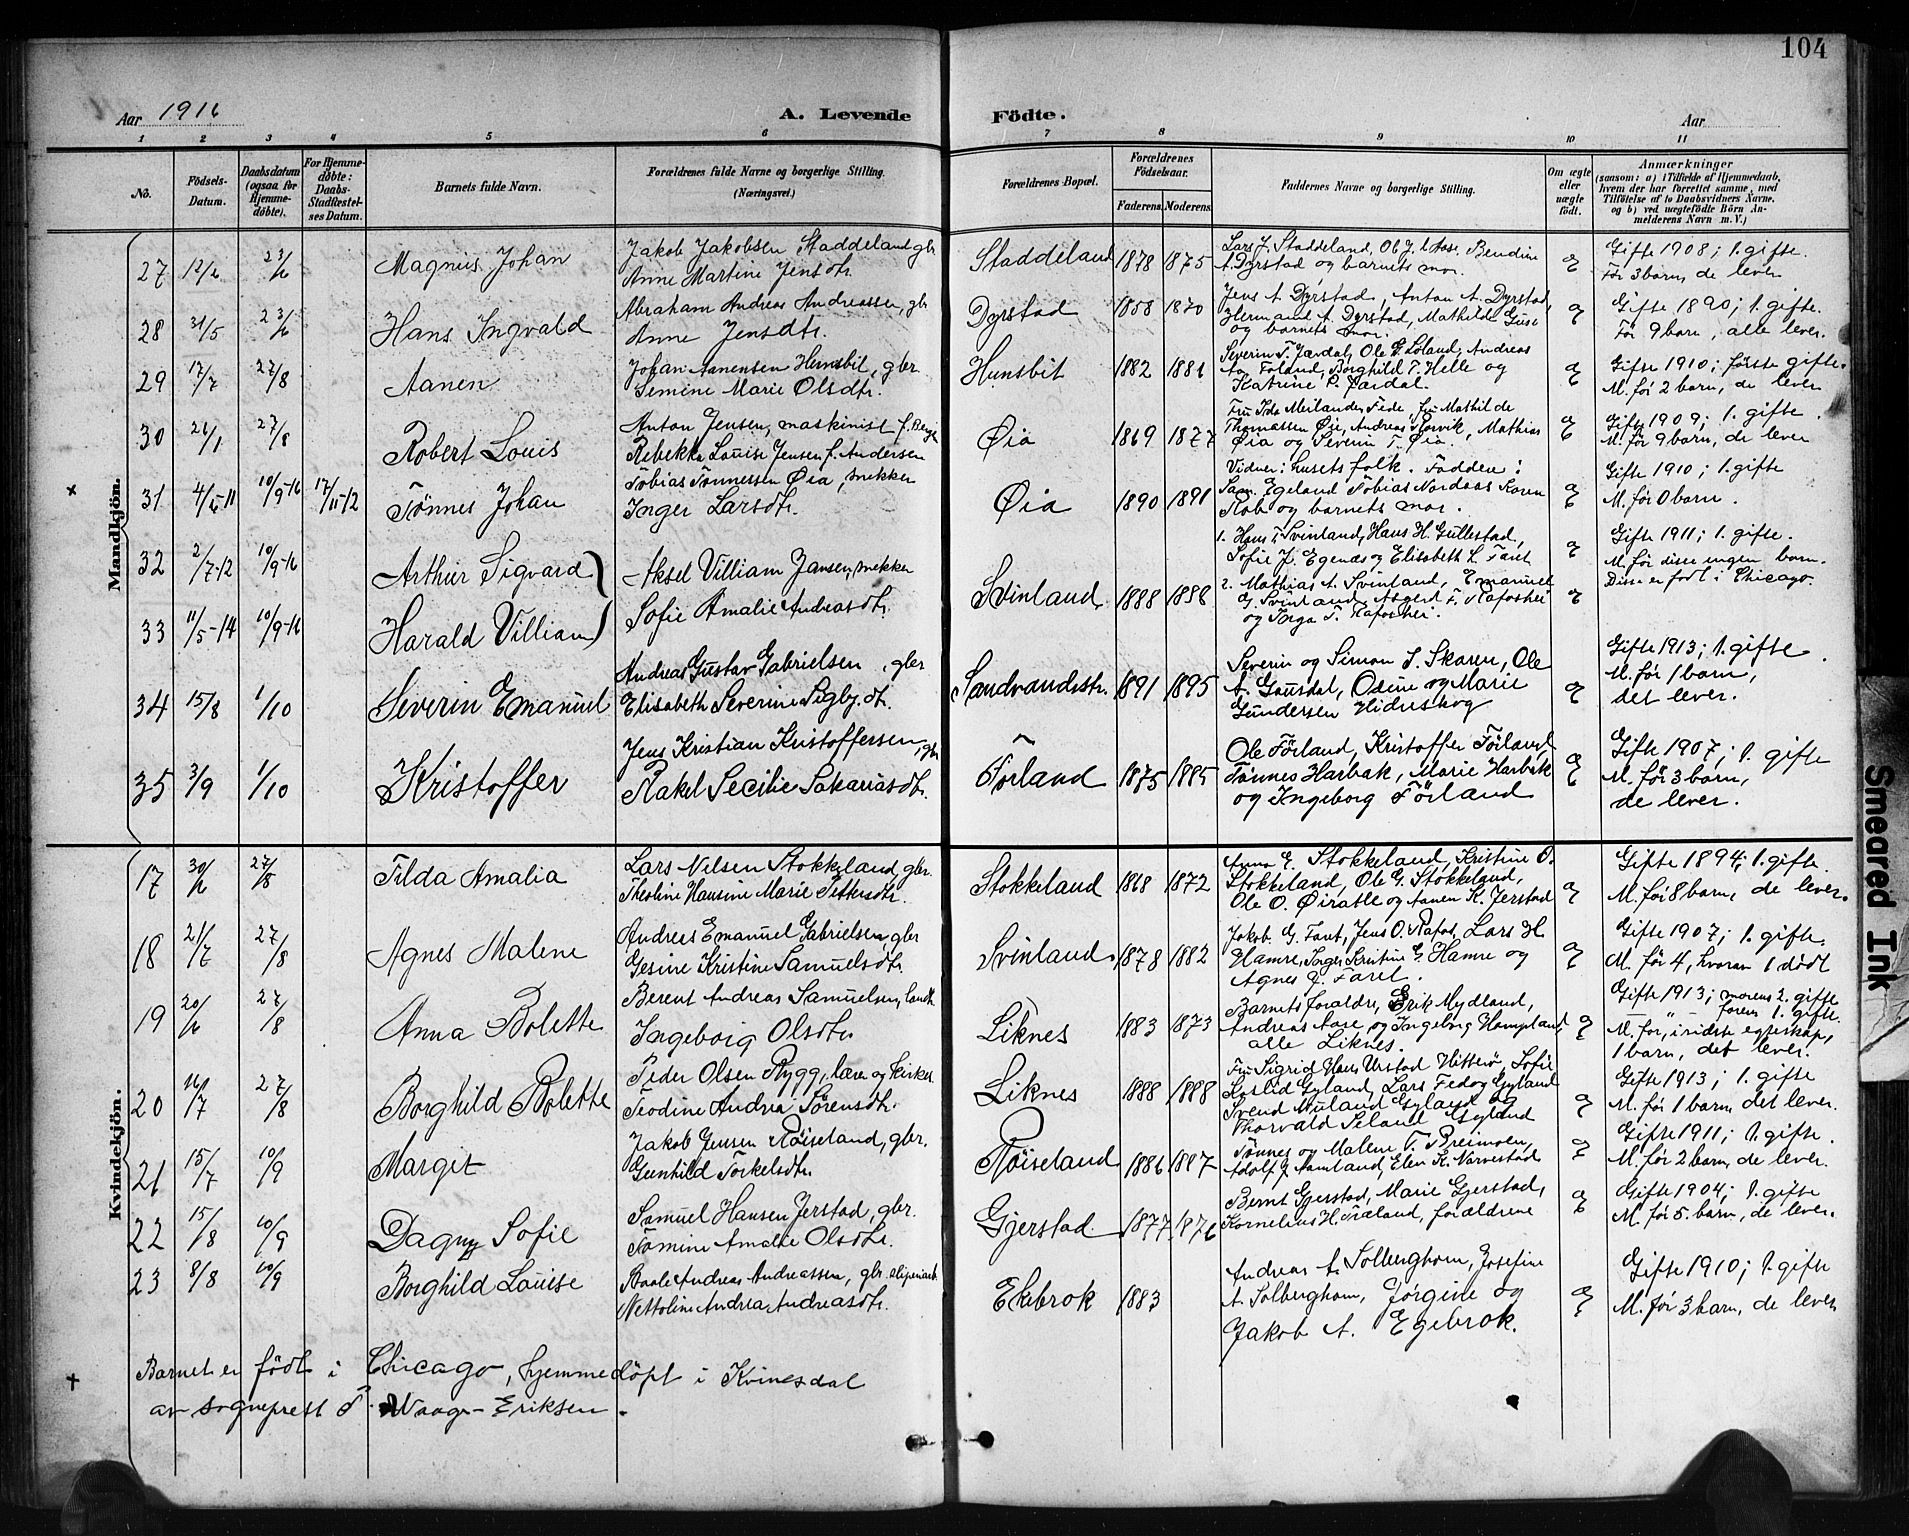 104
Aar 1916
A. Levende
Födte.
Aar
1 2 3 4 5 6 7 8 9 10 11
No.
Födsels-Datum.
Daabsdatum (ogsaa for Hjemmedöbte).
For Hjemmedöbte: Daabs-Stadfæstelses Datum.
Barnets fulde Navn.
Forældrenes fulde Navne og borgerlige Stilling. (Næringsvei.)
Forældrenes Bopæl.
Forældrenes Födselsaar.
Faderens.
Moderens.
Faddernes Navne og borgerlige Stilling.
Om ægte eller uægte födt.
Anmærkninger
(saasom: a) i Tilfælde af Hjemmedaab, hvem der har forrettet samme, med Tilföielse af to Daabsvidners Navne. og b) ved uægtefödte Börn Anmelderens Navn m. V.)
Mandkjön.
27 12/6 23/6 Magnus Johan
Jakob Jakobsen Staddeland gbr
Anne Martine Jensdtr.
Staddeland 1878 1875
Lars J. Staddeland, Ol. J. Aase, Bendine
A. Dyrstad og barnets mor.
Gifte 1908; 1. gifte.
Før 3 barn, de lever
28 31/5 23/6 Hans Ingvald
Abraham Andreas Andreassen, gbr
Anne Jensdtr.
Dyrstad 1858 1870
Jens A. Dyrstad, Anton A. Dyrstad,
Hermand A. Dyrstad, Mathilde
og barnets mor.
Gifte 1890; 1. gifte.
Før 9 barn, alle lever.
29 17/7 27/8 Aanen
Johan Aanensen Hunsbit, gbr
Semine Marie Olsdtr.
Hunsbit 1882 1881
Severin T. Jerdal, Ole G. Løland, Andreas
Aa. Foland, Borghild T. Helle og
Katrine P. Jærdal.
Gifte 1910; første gifte.
M. før 2 barn, de lever
30 26/1 27/8 Robert Louis
Anton Jensen, maskinist f.
Rebekka Louise Jensen f. Andersen
Øia 1869 1877
Fru Ida Meilander Fede, fru Mathilde
Thomassen Øie, Andreas, Mathias
Øia og Severin T. Øia.
Gifte 1909; 1. gifte.
M. før 9 barn, de lever
x 31 4/6-11 10/9-16 17/11-12 Tönnes Johan
Tobias Tønnessen Øia, snekker
Inger Larsdtr.
Øia 1890 1891
Vidner: husets folk. Faddere:
Sam. Egeland Tobias Nordaas Karen
Rob og barnets mor.
Gifte 1910; 1. gifte
M. før 0 barn.
32 2/7-12 10/9-16 Arthur Sigvard
33 11/5-14 10/9-16 Harald Villiam
Aksel Villiam Jansen, snekker
Sofie Amalie Andreasdtr.
Svinland. 1888 1886
1. Hans T. Svinland, Hans H. Gullestad,
Sofie J. Egenæs og Elisabeth L. Faret
2. Mathias A. Svinland, Emanuel
G. Svinland, Asgerd F. Rafoshei
og Inga T. Rafoshei.
Gifte 1911; 1. gifte.
M. før disse ingen barn.
Disse er født i Chicago.
34 15/8 1/10 Severin Emanuel
Andreas Gustav Gabrielsen, gbr
Elisabeth Severine Sigbj.dt.
Sandvandsstr. 1891 1895
Severin og Simon S. Skaren, Ole
A. Gausdal, Odine og Marie
Gundersen Hidreskog
Gifte 1913; 1. gifte
M. før 1 barn,
det lever.
35 3/9 1/10 Kristoffer
Jens Kristian Kristoffersen, gbr
Rakel Secilie Sakariasdtr.
Förland 1875 1885
Ole Förland, Kristoffer Förland
Tønnes Harbak, Marie Harbak
og Ingeborg Förland
Gifte 1907; 1. gifte
M. før 3 barn,
de lever.
Kvindekjön.
17 30/6 27/8 Tilda Amalia
Lars Nilsen Stokkeland, gbr.
Theoline Hansine Marie Pettersdtr.
Stokkeland 1868 1872
Anna E. Stokkeland, Kristine O.
Stokkeland, Ole G. Stokkeland,
Ole O. Øiratle og Aanen K. Jerstad
Gifte 1894; 1. gifte.
M. før 8 barn, de lever.
18 21/7 27/8 Agnes Malene
Andreas Emanuel Gabrielsen, gbr
Gesine Kristine Samuelsdtr.
Svinland. 1878 1882
Jakob G. Faret, Jens O. Rafos, Lars H.
Hamre, Inger Kristine G. Hamre og
Agnes J. Faret.
Gifte 1907; 1. gifte.
M. før 4, hvorav 1 dødt
19 20/6 27/8 Anna Bolette
Berent Andreas Samuelsen, landh.
Ingeborg Olsdtr.
Liknes 1883 1873
Barnets foraldre, Erik Mydland,
Andreas Aase, og Ingeborg Hompland,
alle Liknes.
Gifte 1913; morens 2. gifte
farens 1. gifte.
M. før, i sidste egteskap,
1 barn, det lever.
20 16/7 27/8 Borghild Bolette
Peder Olsen Rygg, lærer og kirkes.
Teodine Andrea Sörensdtr.
Liknes 1888 1888
Fru Sigrid Hans Urstad Hitterö, Sofie
Gyland, Lars Fedog Gyland
Svend Gyland og
Thorvald Seland Gyland
Gifte 1913; 1. gifte
M. før 1 barn, det lever.
21 15/7 10/9 Margit
Jakob Jensen Röiseland, gbr.
Gunhild Torkelsdtr.
Röiseland 1886 1887
Tønnes og Malene T. Breimoen,
Adolf J. Aamland, Elen K. Narvestad
Gifte 1911; 1. gifte.
M. før 2 barn, de lever.
22 15/8 10/9 Dagny Sofie
Samuel Hansen Jerstad, gbr.
Tomine Amalie Olsdtr.
Gjerstad. 1877 1876
Bernt Gjerstad, Marie Gjerstad,
Kornelius H. Træland, forældrene
Gifte 1904; 1. gifte
M. før 5. barn, de lever.
23 8/8 10/9 Borghild Louise
Baale Andreas Andreassen, gbr. sliperiarb.
Nettoline Andrea Andreasdtr.
Ekebrok 1883
Andreas A. Solberghom, Josefine
A. Solberghom, Jørgine og
Jakob A. Egebrok.
Gifte 1910; 1. gifte
M. før 3 barn, de lever
+ Barnet er födt i Chicago, hjemmedöpt i Kvinesdal
av sogneprest J. Waage-Eriksen.
Smeared Ink